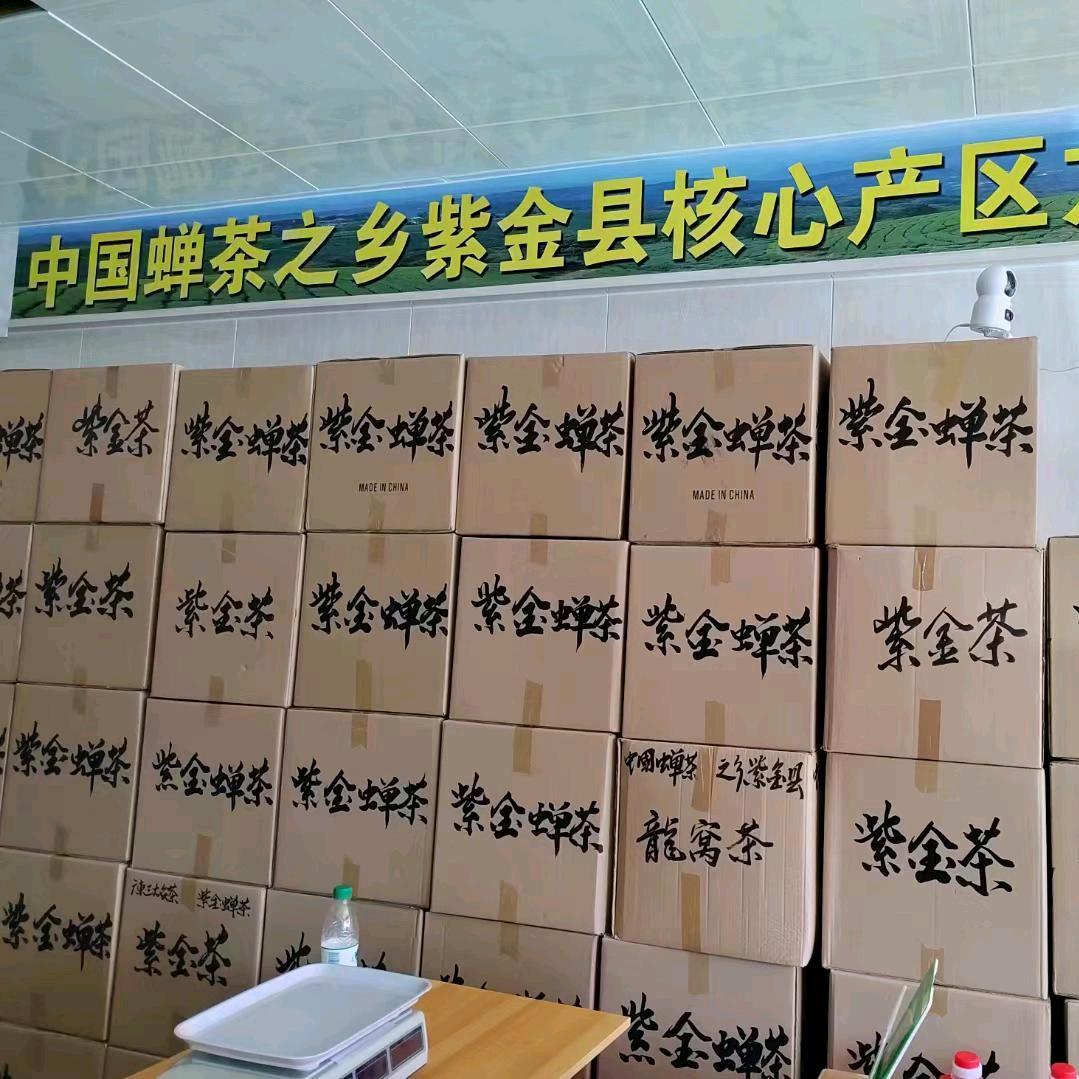 中国蝉茶之乡紫金县核心产区
蝉茶
紫金茶
紫金蝉茶
紫金蝉茶
MADE IN CHINA
紫金蝉茶
紫金蝉茶
MADE IN CHINA
紫金蝉茶
茶
紫金茶
紫金茶
紫金蝉茶
紫金蝉茶
紫金蝉茶
紫金茶
紫金蝉茶
紫金蝉茶
紫金蝉茶
紫金蝉茶
中國蝉茶 之乡紫金县
龍窝茶
紫金茶
紫金蝉茶
广东三大名茶 紫金蝉茶
紫金茶
紫金蝉茶